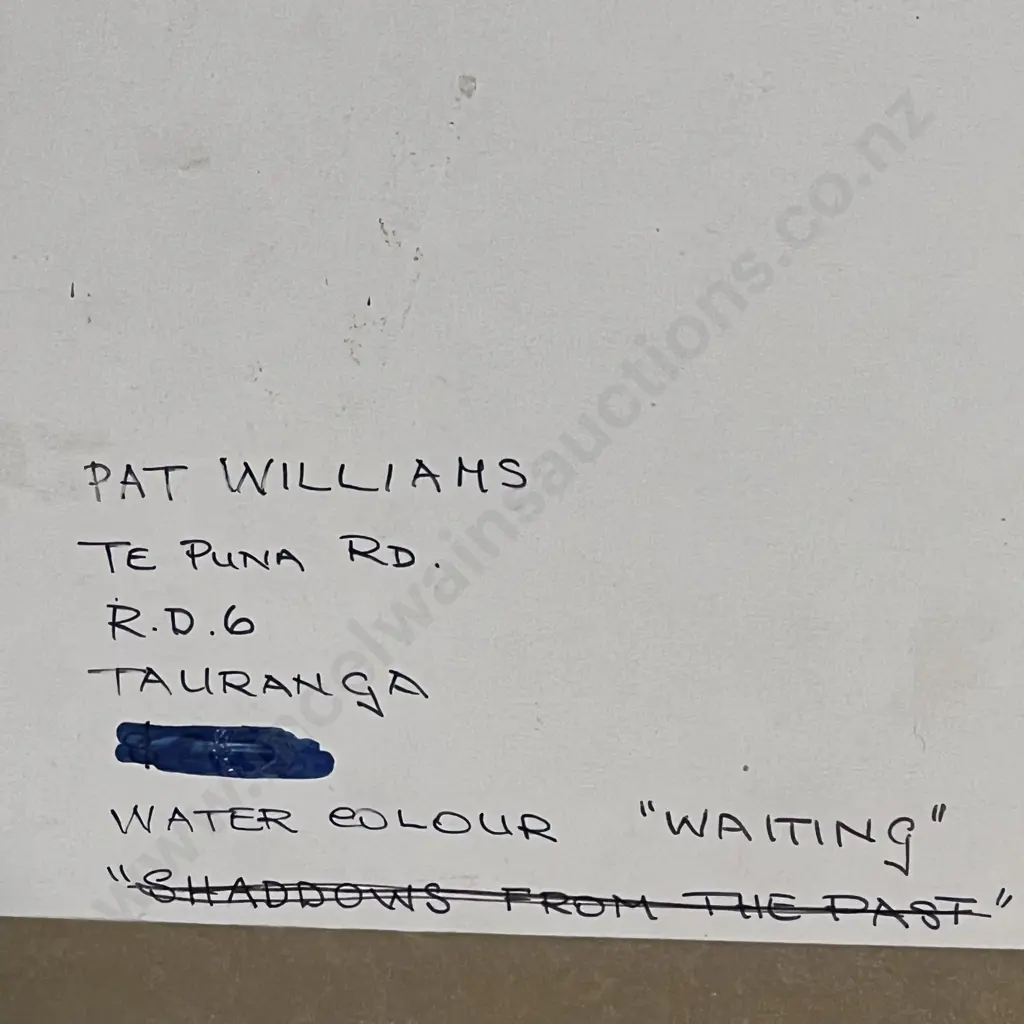 PAT WILLIAMS
TE PUNA RD.
R.D.6
TAURANGA
WATER COLOUR "WAITING"
"SHADDOWS FROM THE PAST"
www.mcelwainsauctions.co.nz